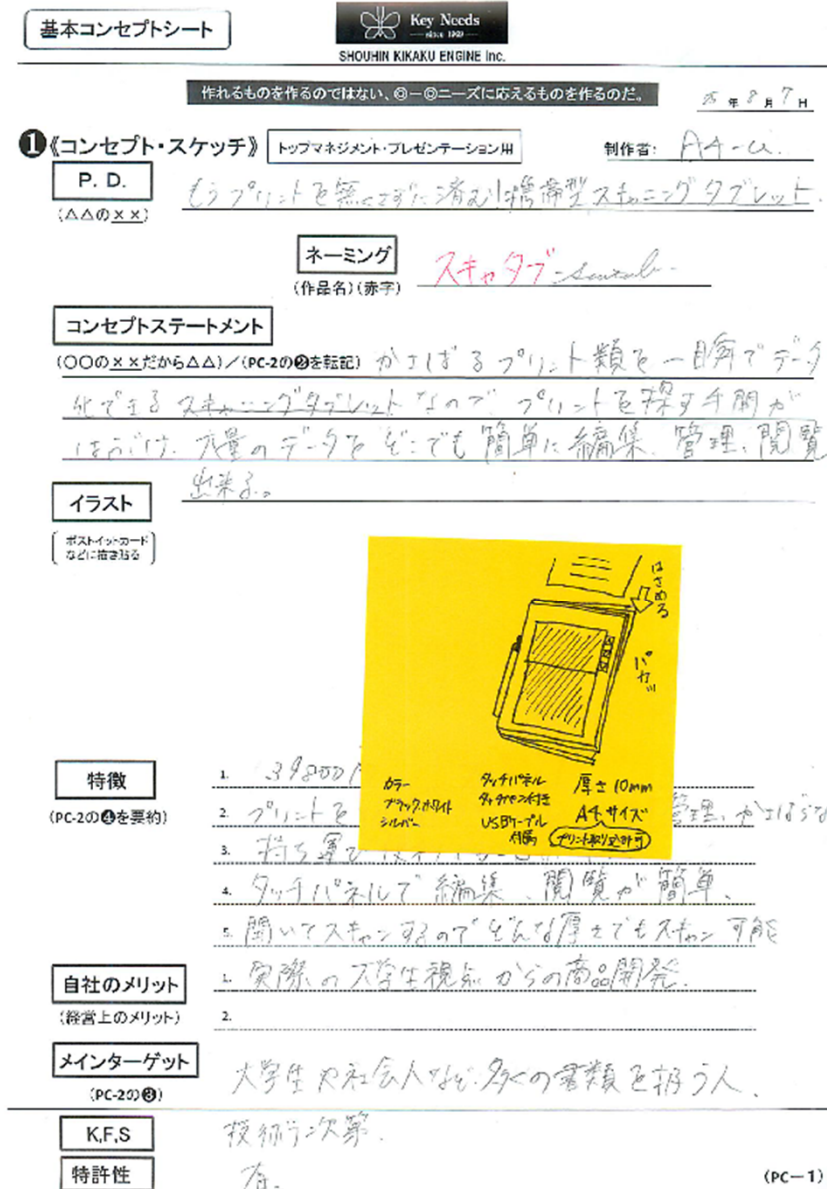 基本コンセプトシート
Key Needs
since 1989
SHOUHIN KIKAKU ENGINE Inc.
作れるものを作るのではない、◎ー◎ニーズに応えるものを作るのだ。
年 8 月 7 日
❶《コンセプト・スケッチ》 トップマネジメント・プレゼンテーション用 制作者: A4-
P. D.
(△△の××)
もうプリントを無くさずに済む!携帯型スキャニングタブレット.
ネーミング
(作品名)(赤字)
スキャタブ
コンセプトステートメント
(〇〇の××だから△△)/(PC-2の❷を転記) かさばるプリント類を一瞬でデータ
化できるスキャニングタブレットなので、プリントを探す手間が
はぶけ、大量のデータをどこでも簡単に編集、管理、閲覧
出来る。
イラスト
ポストイットカード
などに描き貼る
はさめる
パカッ
カラー
ブラック、ホワイト
シルバー
タッチパネル
タッチペン付き
USBケーブル
付属
厚さ10mm
A4サイズ
プリント取り込み可
特徴
(PC-2の❹を要約)
1. 39800
2. プリントを 管理、かさばらな
3. 持ち運び
4. タッチパネルで編集、閲覧が簡単、
5. 開いてスキャンするのでどんな厚さでもスキャン可能
自社のメリット
(経営上のメリット)
1. 実際の大学生視点からの商品開発.
2.
メインターゲット
(PC-2の❸)
大学生や社会人など多くの書類を扱う人、
K,F,S
技術次第.
特許性
有.
(PC−1)